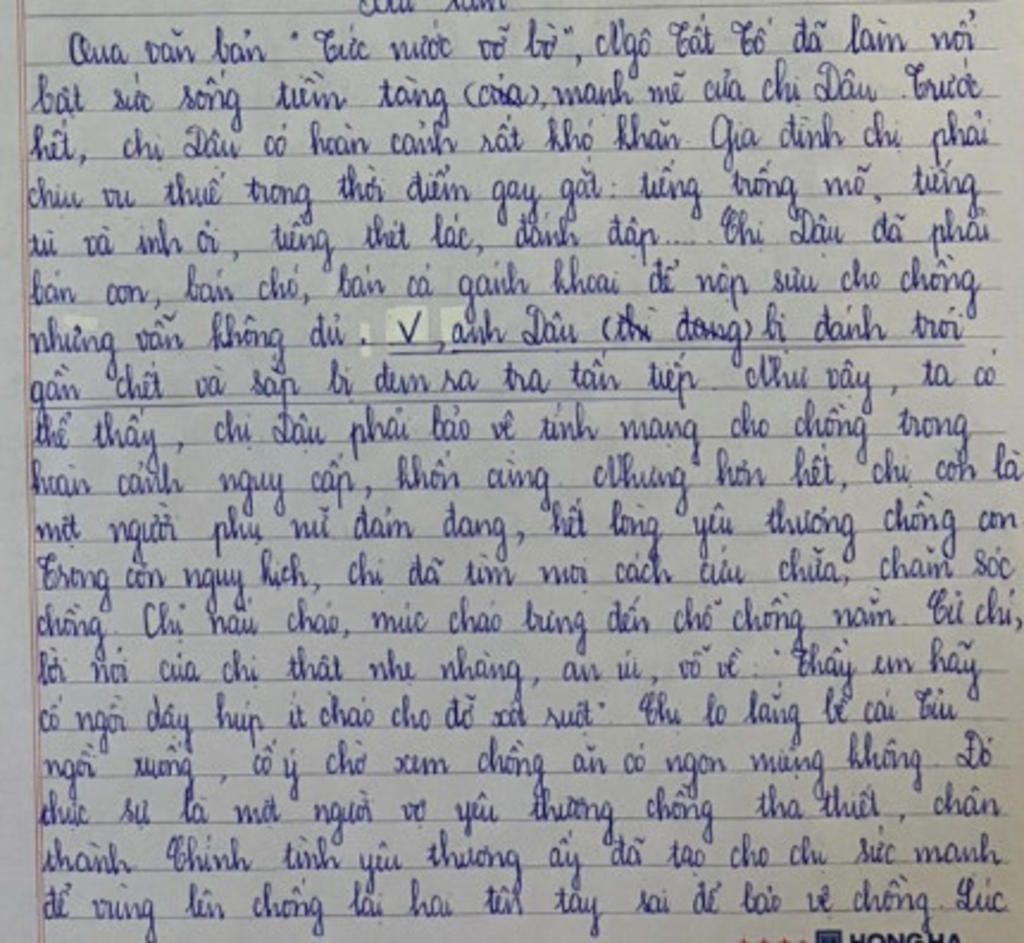 Qua văn bản "Tức nước vỡ bờ", Ngô Tất Tố đã làm nổi
bật sức sống tiềm tàng (của), mạnh mẽ của chị Dậu. Trước
hết, chị Dậu có hoàn cảnh rất khó khăn. Gia đình chị phải
chịu vụ thuế trong thời điểm gay gắt: tiếng trống mõ, tiếng
tù và inh ỏi, tiếng thét lác, đánh đập.... Chị Dậu đã phải
bán con, bán chó, bán cả gánh khoai để nộp sưu cho chồng
nhưng vẫn không đủ. V, anh Dậu (thì đang) bị đánh trói
gần chết và sắp bị đem ra tra tấn tiếp. Như vậy, ta có
thể thấy, chị Dậu phải bảo vệ tính mạng cho chồng trong
hoàn cảnh nguy cấp, khốn cùng. Nhưng hơn hết, chị còn là
một người phụ nữ đảm đang, hết lòng yêu thương chồng con
Trong cơn nguy kịch, chị đã tìm mọi cách cứu chữa, chăm sóc
chồng. Chị nấu cháo, múc cháo bưng đến chỗ chồng nằm. Cử chỉ,
lời nói của chị thật nhẹ nhàng, an ủi, vỗ về: "Thầy em hãy
cố ngồi dậy húp ít cháo cho đỡ xót ruột". Chị lo lắng bế cái Tỉu
ngồi xuống, cố ý chờ xem chồng ăn có ngon miệng không. Đó
thực sự là một người vợ yêu thương chồng tha thiết, chân
thành. Chính tình yêu thương ấy đã tạo cho chị sức mạnh
để vùng lên chống lại hai tên tay sai để bảo vệ chồng. Lúc
HONG HA